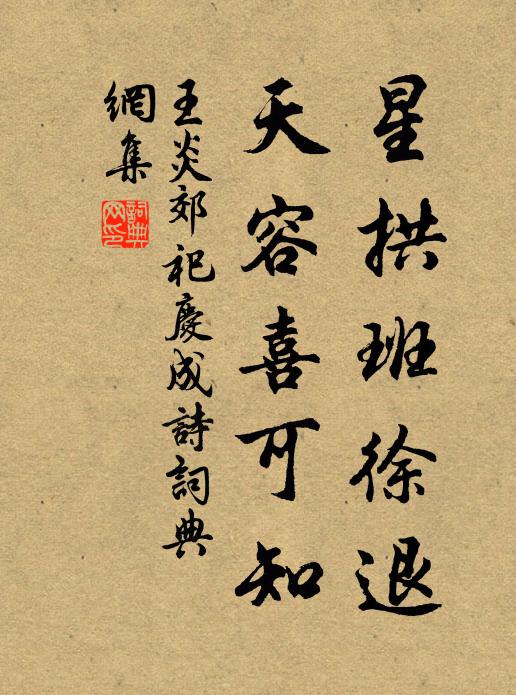 星拱班徐退
天容喜可知
王炎郊祀慶成詩詞典
網集
詞典
網印